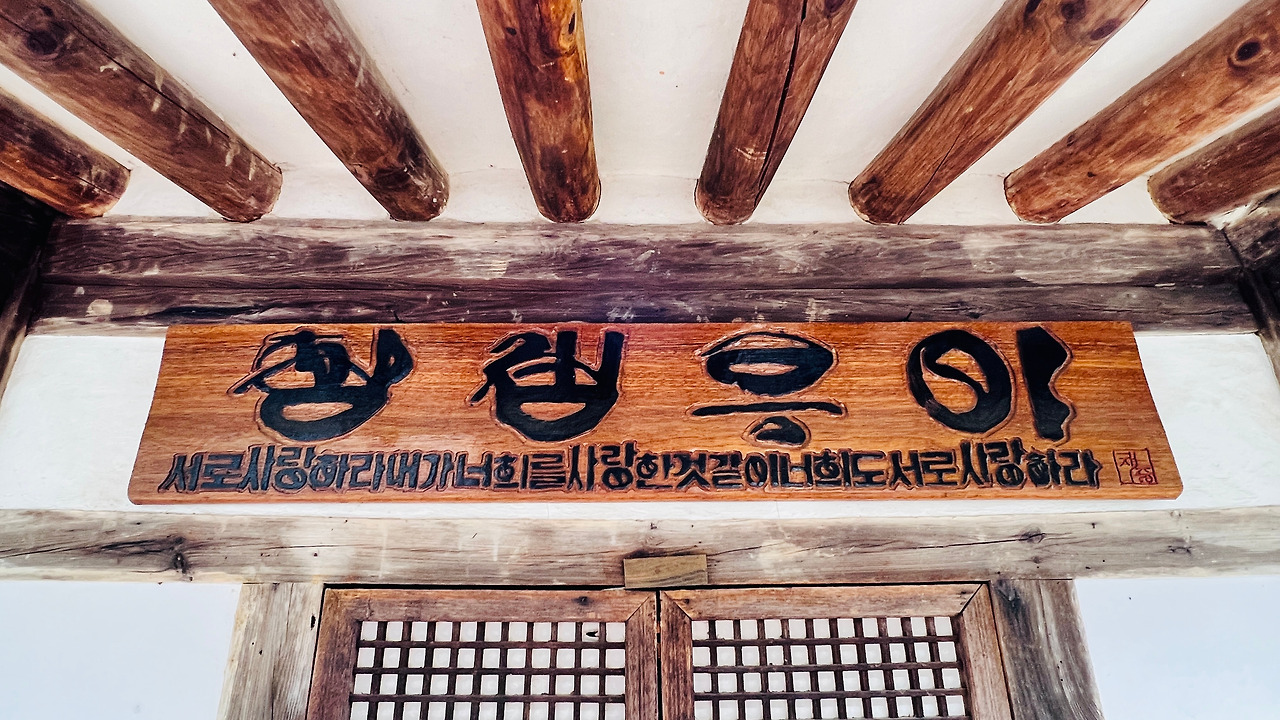 서로사랑하라내가너희를사랑한것같이너희도서로사랑하라